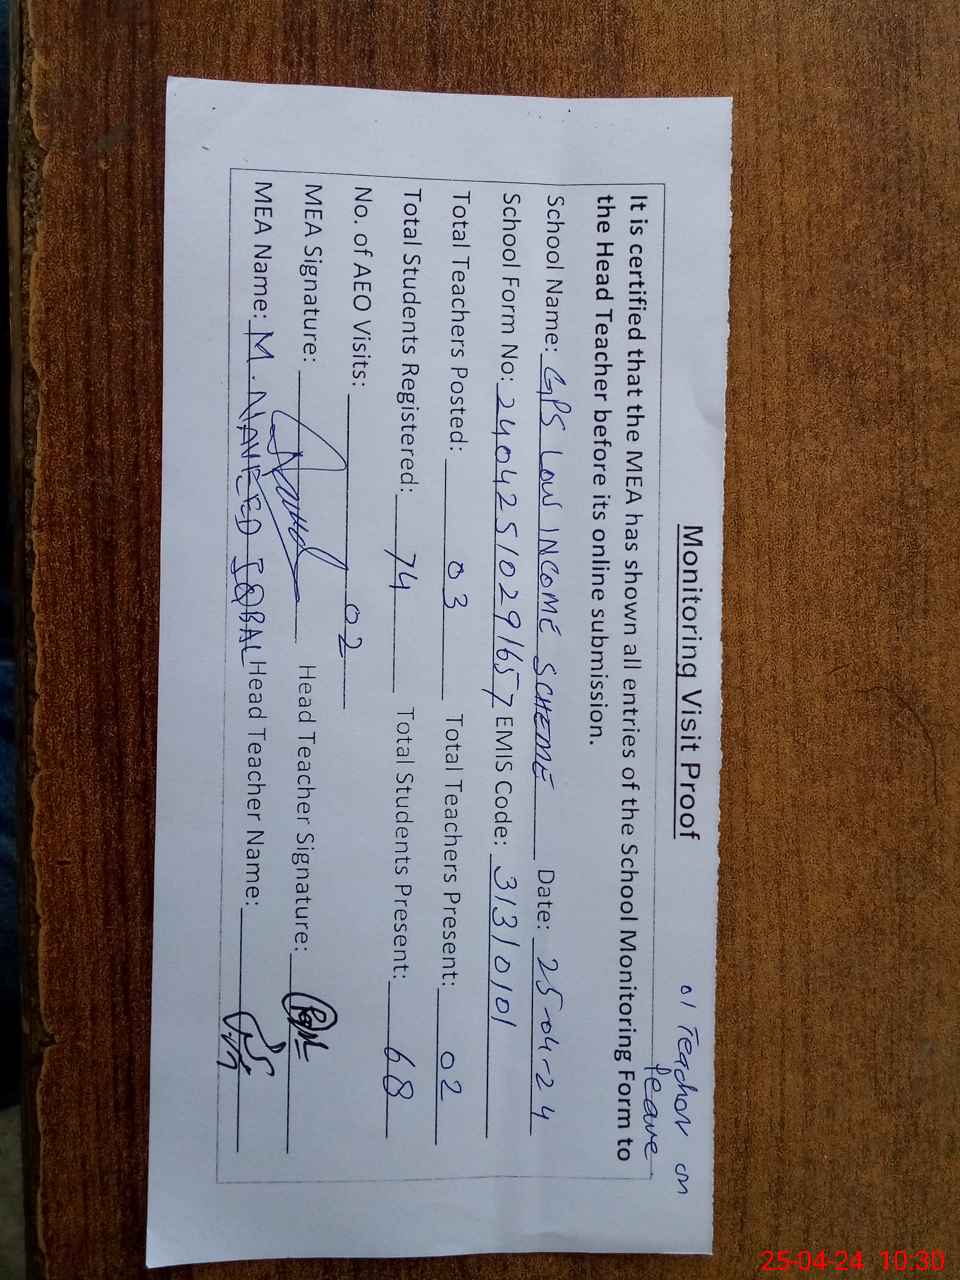 Monitoring Visit Proof
01 Teacher on
leave
It is certified that the MEA has shown all entries of the School Monitoring Form to
the Head Teacher before its online submission.
School Name: GPS LOW INCOME SCHEME Date: 25-04-24
School Form No: 24042510291657 EMIS Code: 31310101
Total Teachers Posted: 03 Total Teachers Present: 02
Total Students Registered: 74 Total Students Present: 68
No. of AEO Visits: 02
MEA Signature: Head Teacher Signature:
MEA Name: M. NAVEED IQBAL Head Teacher Name:
25-04-24 10:30